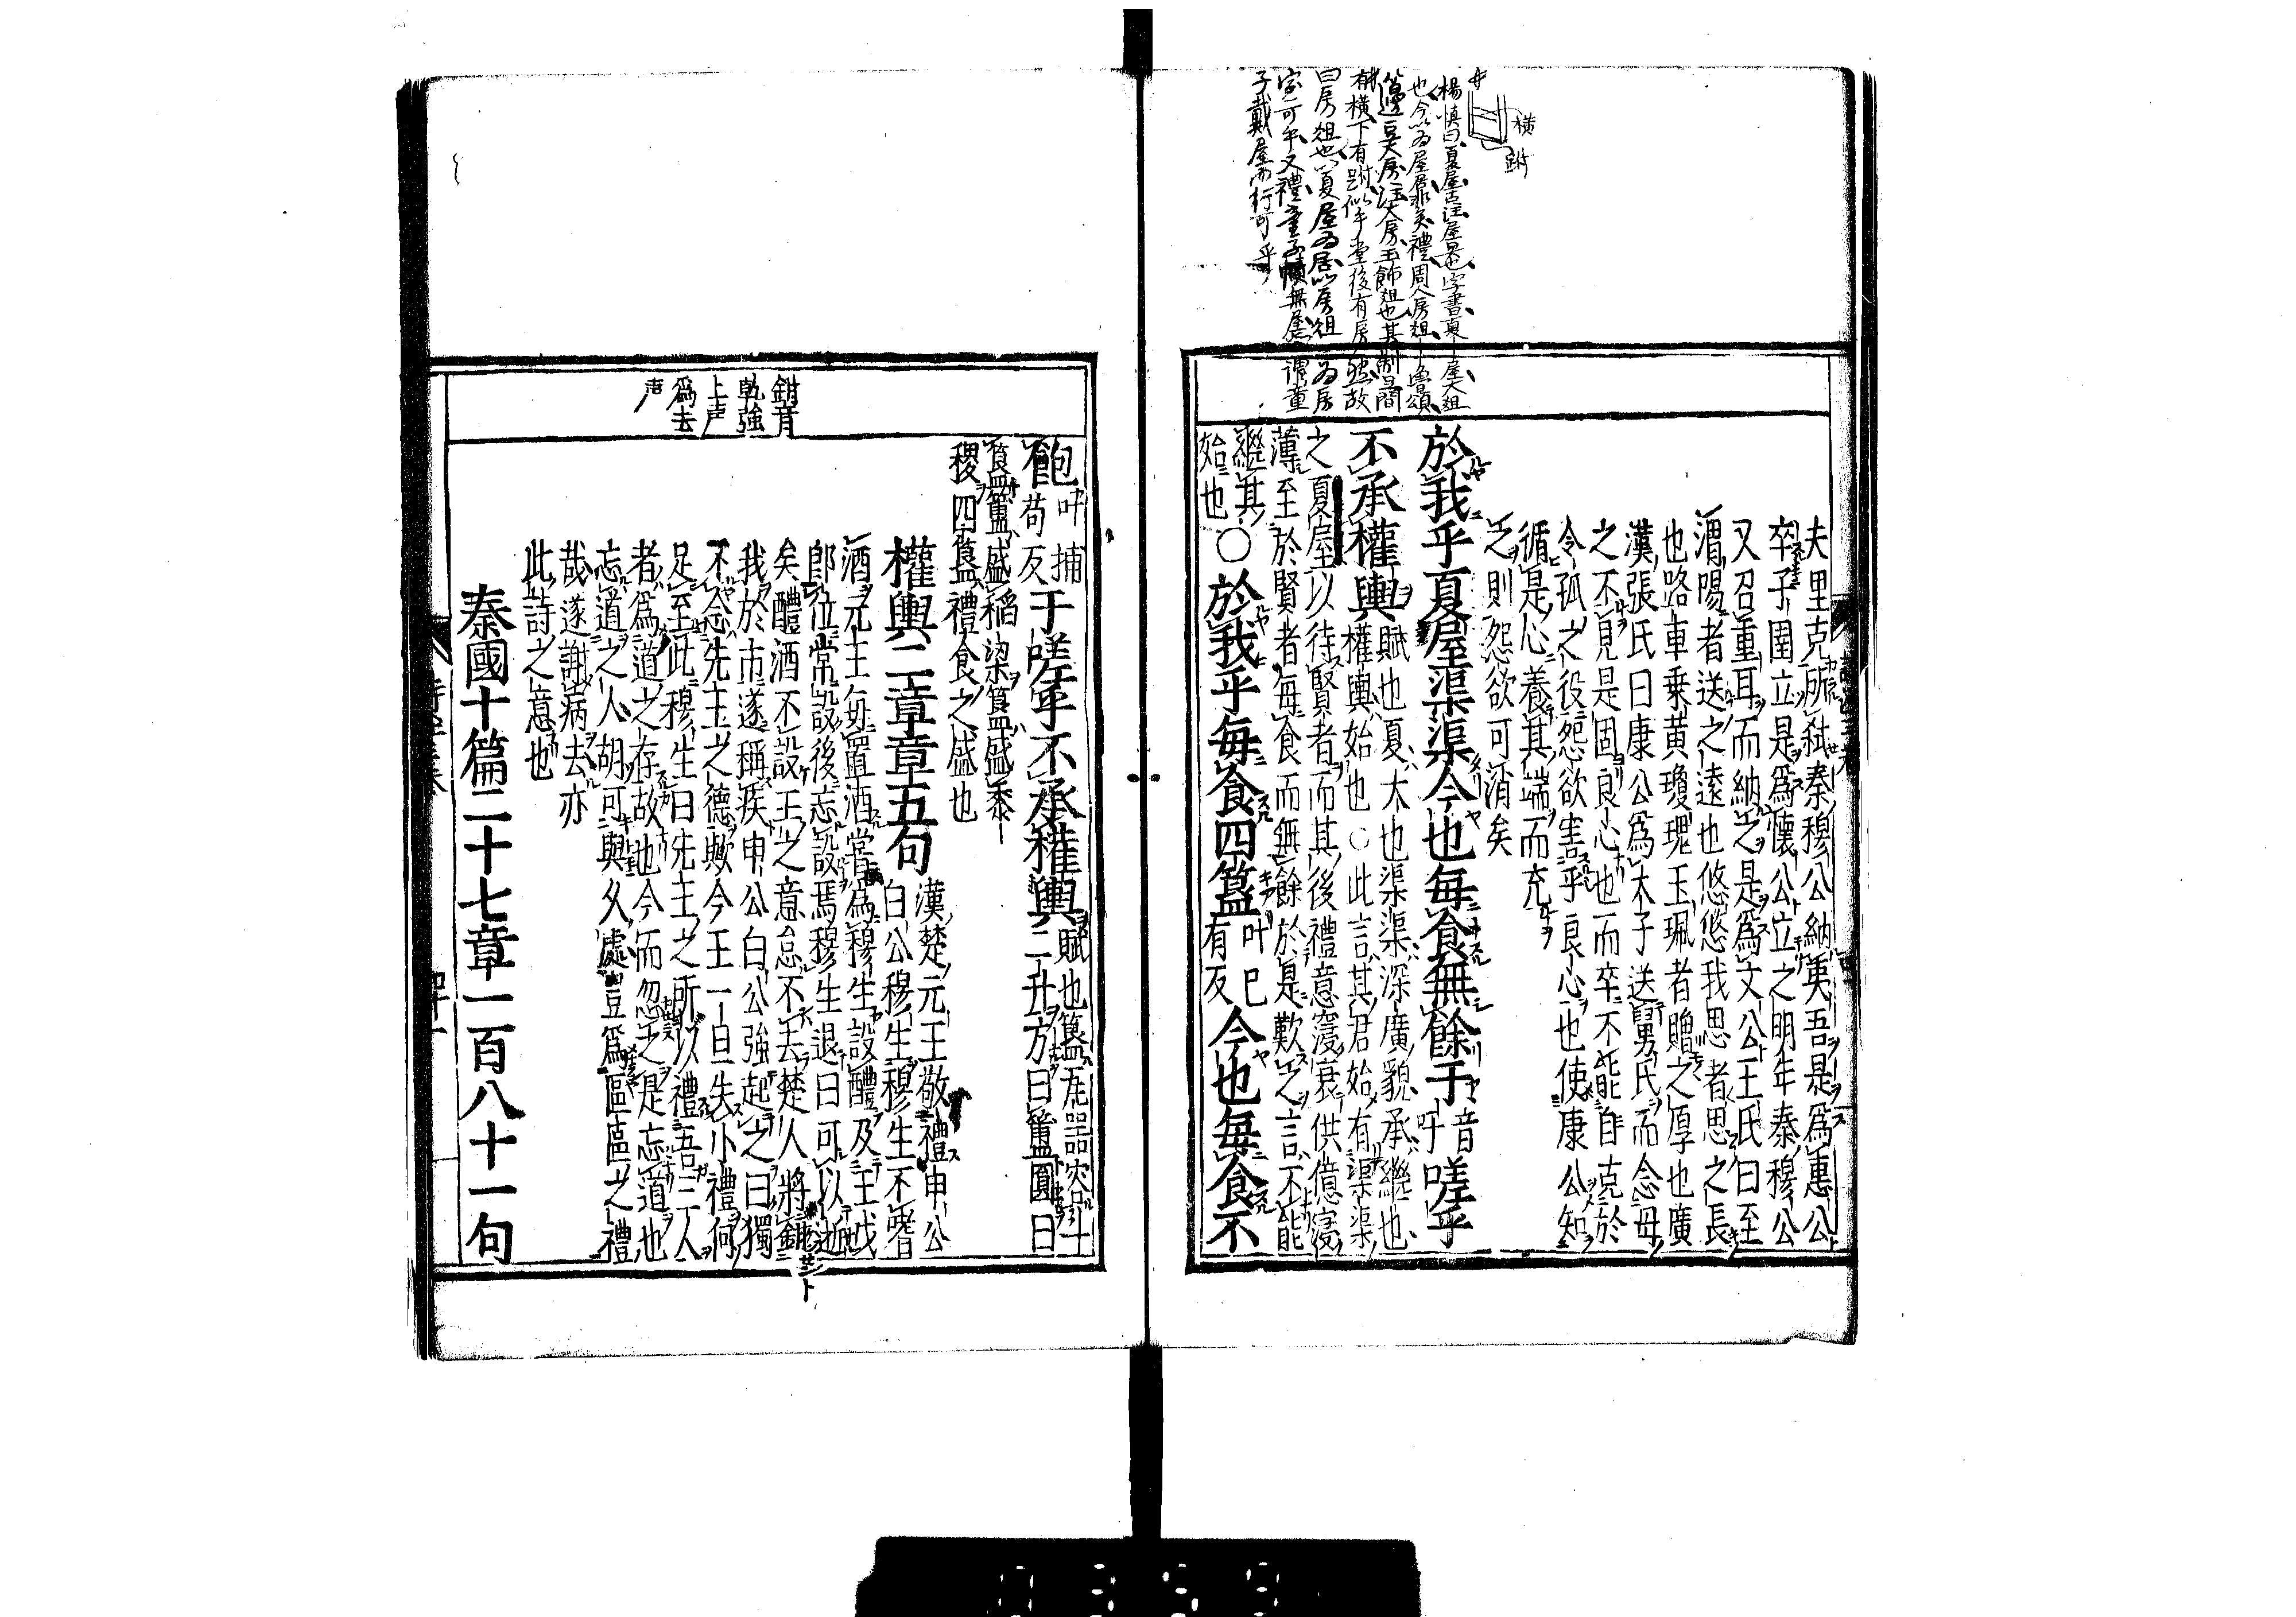 横
跗
楊慎曰夏屋古注屋具也字書夏屋大俎
也今以為屋居非矣禮周人房俎魯頌
籩豆大房注大房玉飾俎也其制足間
有横下有跗似乎堂後有房然故
曰房俎也以夏屋為居以房俎為房
室可乎又禮童子幘無屋謂童
子戴屋而行可乎
夫里克所弑秦穆公納夷吾是爲惠公
卒子圉立是爲懷公立之明年秦穆公
又召重耳而納之是爲文公王氏曰至
渭陽者送之遠也悠悠我思者思之長
也路車乗黄瓊瑰玉珮者贈之厚也廣
漢張氏曰康公爲太子送舅氏而念母
之不見是固良心也而卒不能自克於
令孤之役怨欲害乎良心也使康公知
循是心養其端而充
之則怨欲可消矣
於我乎夏屋渠渠今也毎食無餘于音吁嗟乎
不承權輿賦也夏大也渠渠深廣貌承繼也
權輿始也○此言其君始有渠渠
之夏屋以待賢者而其後禮意寖衰供億寖
薄至於賢者毎食而無餘於是歎之言不能
繼其
始也○於我乎毎食四簋叶已有反今也毎食不
銔音
乾強
上声
爲去
声
飽叶捕苟反于嗟乎不承權輿賦也簋瓦器容斗二升方曰簠圓曰
簋簠盛稻粱簋盛黍
稷四簋禮食之盛也
權輿二章章五句漢楚元王敬禮申公
白公穆生穆生不嗜
酒元王毎置酒常爲穆生設醴及王戊
即位常設後忘設焉穆生退曰可以逝
矣醴酒不設王之意怠不去楚人將鉗
我於市遂稱疾申公白公強起之曰獨
不念先王之德歟今王一旦失小禮何
足至此穆生曰先王之所以禮吾三人
者爲道之存故也今而忽之是忘道也
忘道之人胡可與久處豈爲區區之禮
哉遂謝病去亦
此詩之意也
秦國十篇二十七章一百八十一句